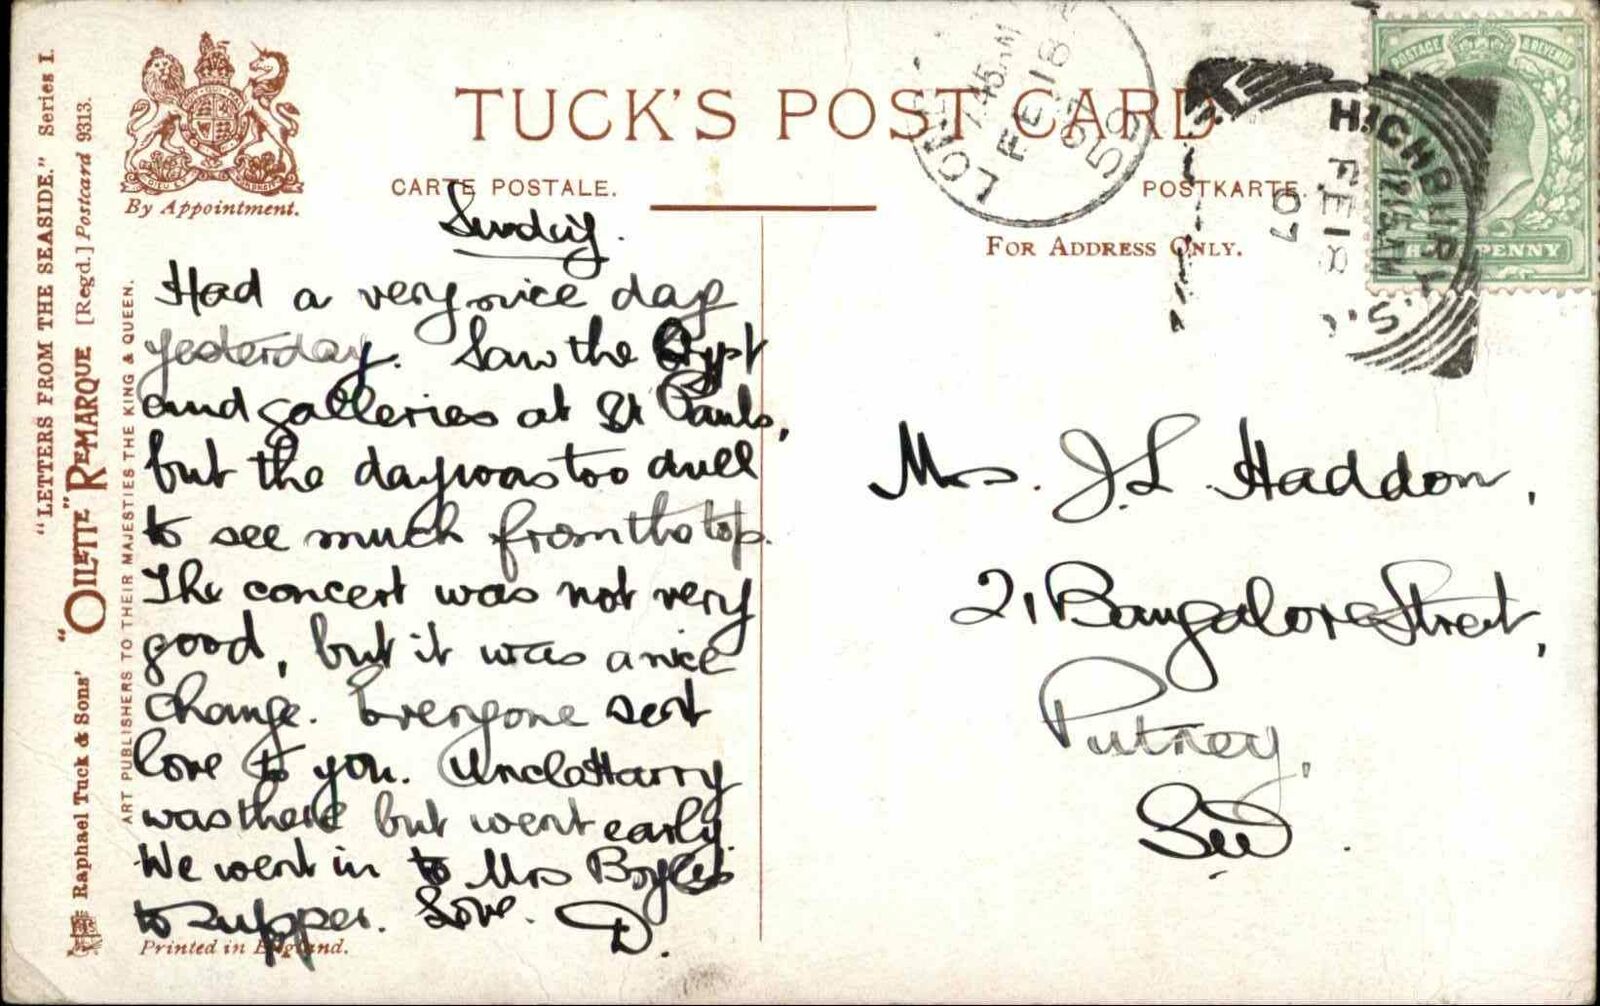 "LETTERS FROM THE SEASIDE." Series I.
Raphael Tuck & Sons' "OILETTE" REMARQUE [Regd.] Postcard 9313.
ART PUBLISHERS TO THEIR MAJESTIES THE KING & QUEEN.
By Appointment.
TUCK'S POST CARD
CARTE POSTALE.
POSTKARTE.
FOR ADDRESS ONLY.
7.15 AM
FE 18
07
59
HIGHBURY
12.15 AM
FE 18
07
POSTAGE & REVENUE
HALF PENNY
Sunday.
Had a very nice day
yesterday. Saw the Crypt
and galleries at St Pauls,
but the day was too dull
to see much from the top.
The concert was not very
good, but it was a nice
change. Everyone sent
love to you. Uncle Harry
was there but went early.
We went in to Mrs
to supper. Love. D.
Printed in England.
Mrs. J.L. Haddon,
21 Bangalore Street,
Putney,
SW.